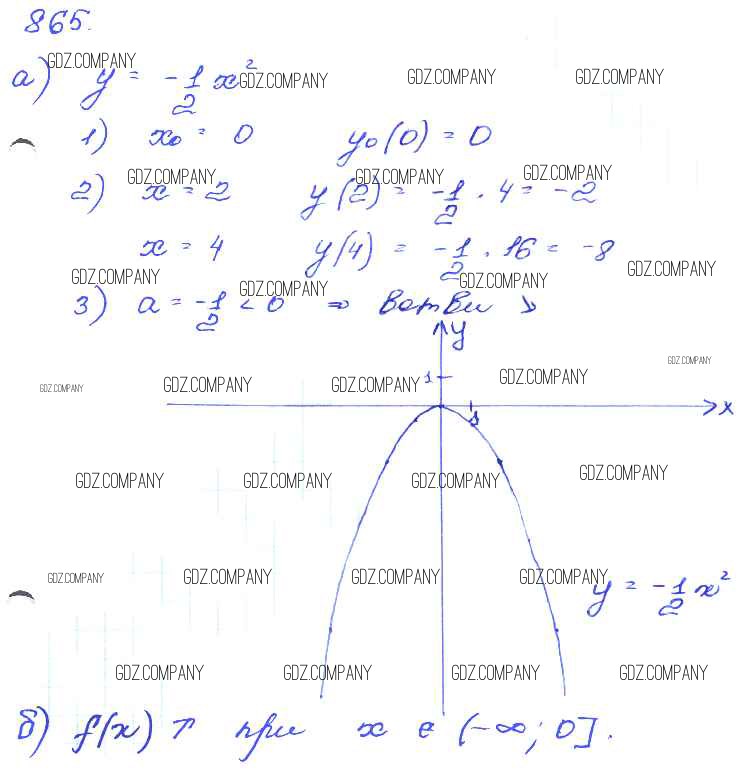 865.
а) y = -1/2 x²
1) x₀ = 0 y₀(0) = 0
2) x = 2 y(2) = -1/2 · 4 = -2
x = 4 y(4) = -1/2 · 16 = -8
3) a = -1/2 < 0 ⇒ ветви ↘
y
1
1 x
y = -1/2 x²
б) f(x) ↑ при x ∈ (-∞; 0].
GDZ.COMPANY GDZ.COMPANY GDZ.COMPANY GDZ.COMPANY
GDZ.COMPANY GDZ.COMPANY GDZ.COMPANY
GDZ.COMPANY GDZ.COMPANY GDZ.COMPANY GDZ.COMPANY
GDZ.COMPANY GDZ.COMPANY GDZ.COMPANY GDZ.COMPANY GDZ.COMPANY
GDZ.COMPANY GDZ.COMPANY GDZ.COMPANY GDZ.COMPANY
GDZ.COMPANY GDZ.COMPANY GDZ.COMPANY GDZ.COMPANY
GDZ.COMPANY GDZ.COMPANY GDZ.COMPANY GDZ.COMPANY